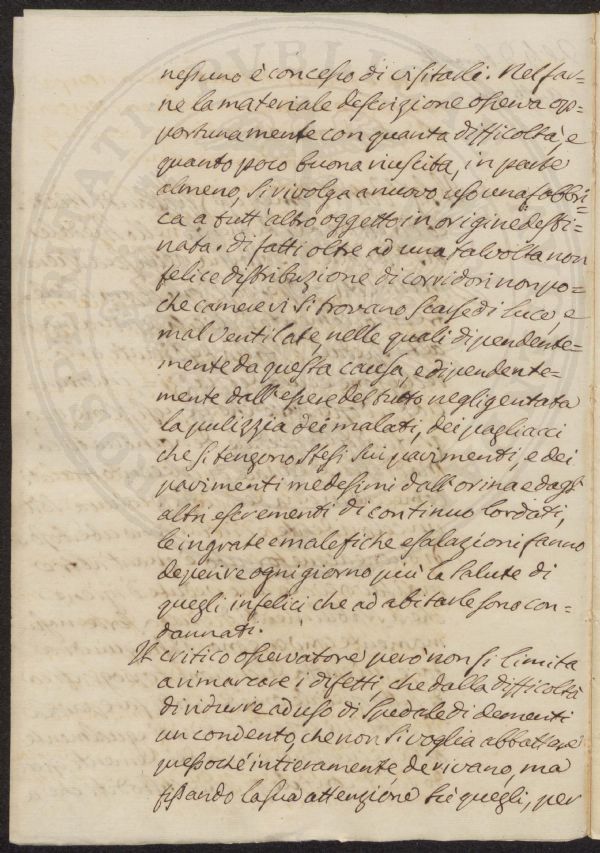 nessuno è concesso di visitarli. Nel far=
ne la materiale descrizione osserva op=
portunamente con quanta difficoltà, e
quanto poco buona riuscita, in parte
almeno, si rivolga a nuovo uso una fabbri=
ca a tutt'altro oggetto in origine desti=
nata. Di fatti oltre ad una talvolta non
felice distribuzione di corridori non po=
che camere vi si trovano scarse di luce, e
mal ventilate, nelle quali dipendente=
mente da questa causa, e dipendente=
mente dall'essere del tutto negligentata
la pulizzia dei malati, dei pagliacci
che si tengono stesi sui pavimenti, e dei
pavimenti medesimi dall'orina e dagl'
altri escrementi di continuo lordati,
le ingrate e malefiche esalazioni fanno
deperire ogni giorno più la salute di
quegli infelici che ad abitarle sono con=
dannati.
Il critico osservatore però non si limita
a rimarcare i difetti che dalla difficoltà
di ridurre ad uso di Spedale di dementi
un convento, che non si voglia abbattere
pressoché intieramente derivano, ma
fissando la sua attenzione su quegli, per